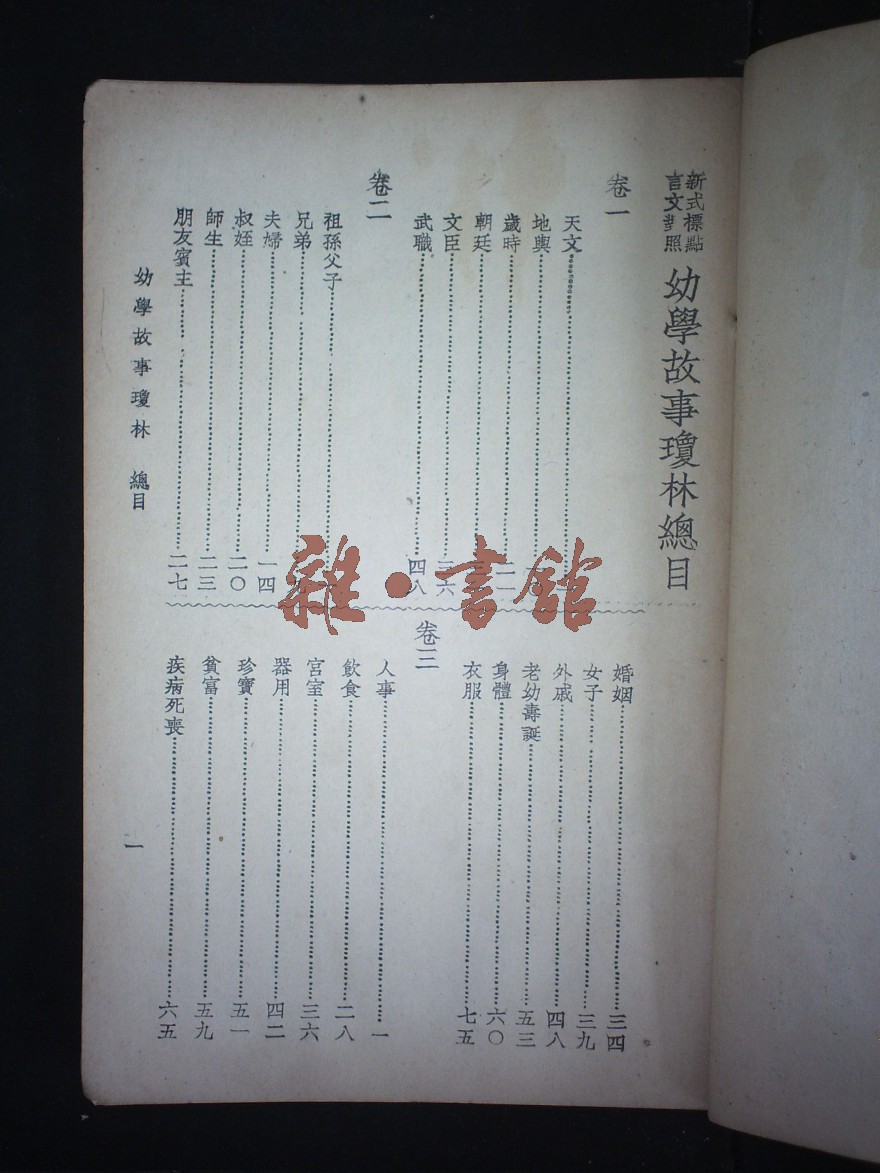 新式標點
言文對照
幼學故事瓊林總目
卷一
天文
地輿
歲時
朝廷
文臣……三六
武職……四八
卷二
祖孫父子
兄弟
夫婦……一四
叔姪……二〇
師生……二三
朋友賓主……二七
婚姻……三四
女子……三九
外戚……四八
老幼壽誕……五三
身體……六〇
衣服……七五
卷三
人事……一
飲食……二八
宮室……三六
器用……四二
珍寶……五一
貧富……五九
疾病死喪……六五
幼學故事瓊林 總目
一
雜·書館